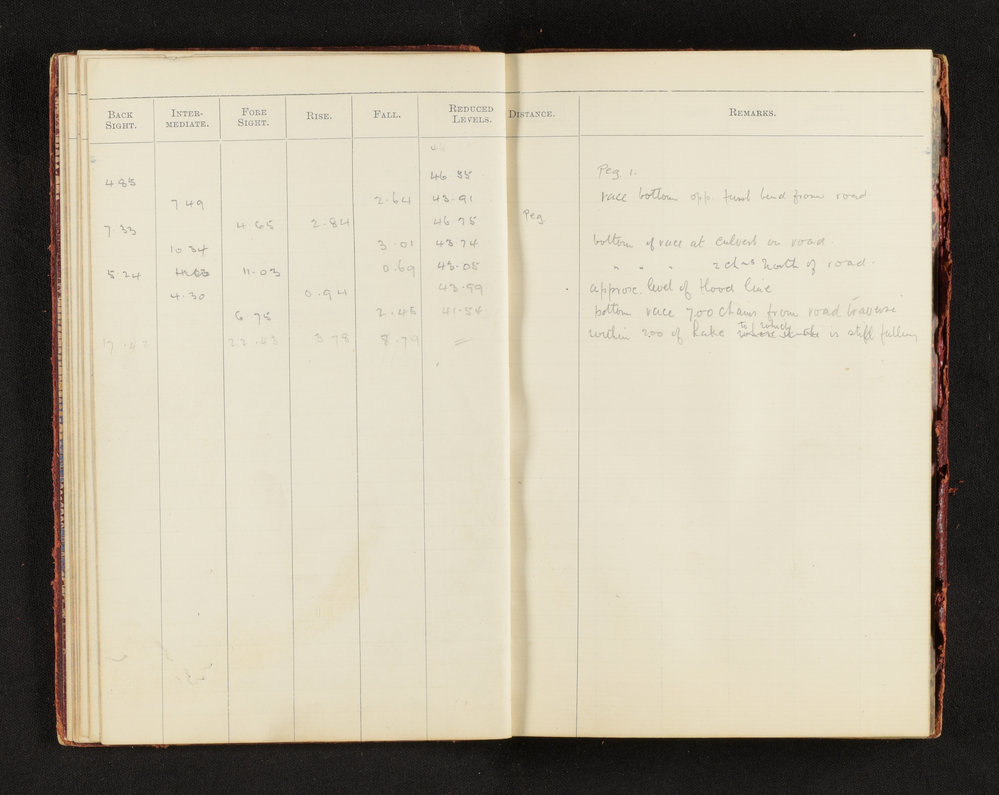 BACK SIGHT. INTER-MEDIATE. FORE SIGHT. RISE. FALL. REDUCED LEVELS. DISTANCE. REMARKS.
46
4 85 46.55 Peg 1.
7 49 2.64 43.91 race bottom opp. bend from road
7.33 4 65 2.84 46.75 Peg
10 34 3.01 43.74 bottom of race at culvert on road.
5.24 11.03 0.69 43.05 " " " 2 chns North of road.
4.30 0.94 43.99 approx. level of flood line
6 75 2.45 41.54 bottom race 7.00 chains from road traverse
17.42 22.43 3 78 8.79 = within 200 of Lake to which is still falling